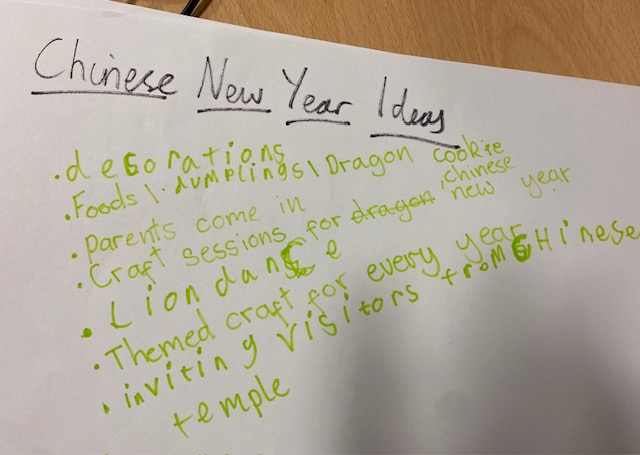 Chinese New Year Ideas
• decorations
• Foods \ dumplings \ Dragon cookie
• parents come in
• Craft sessions for dragon chinese new year
• Lion dance
• Themed craft for every year
• inviting visitors from CHinese
temple